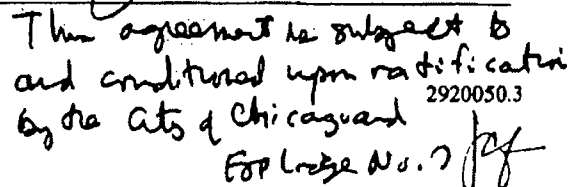 This agreement is subject to
and conditioned upon ratification
by the City of Chicago and
2920050.3
FOP Lodge No. 7